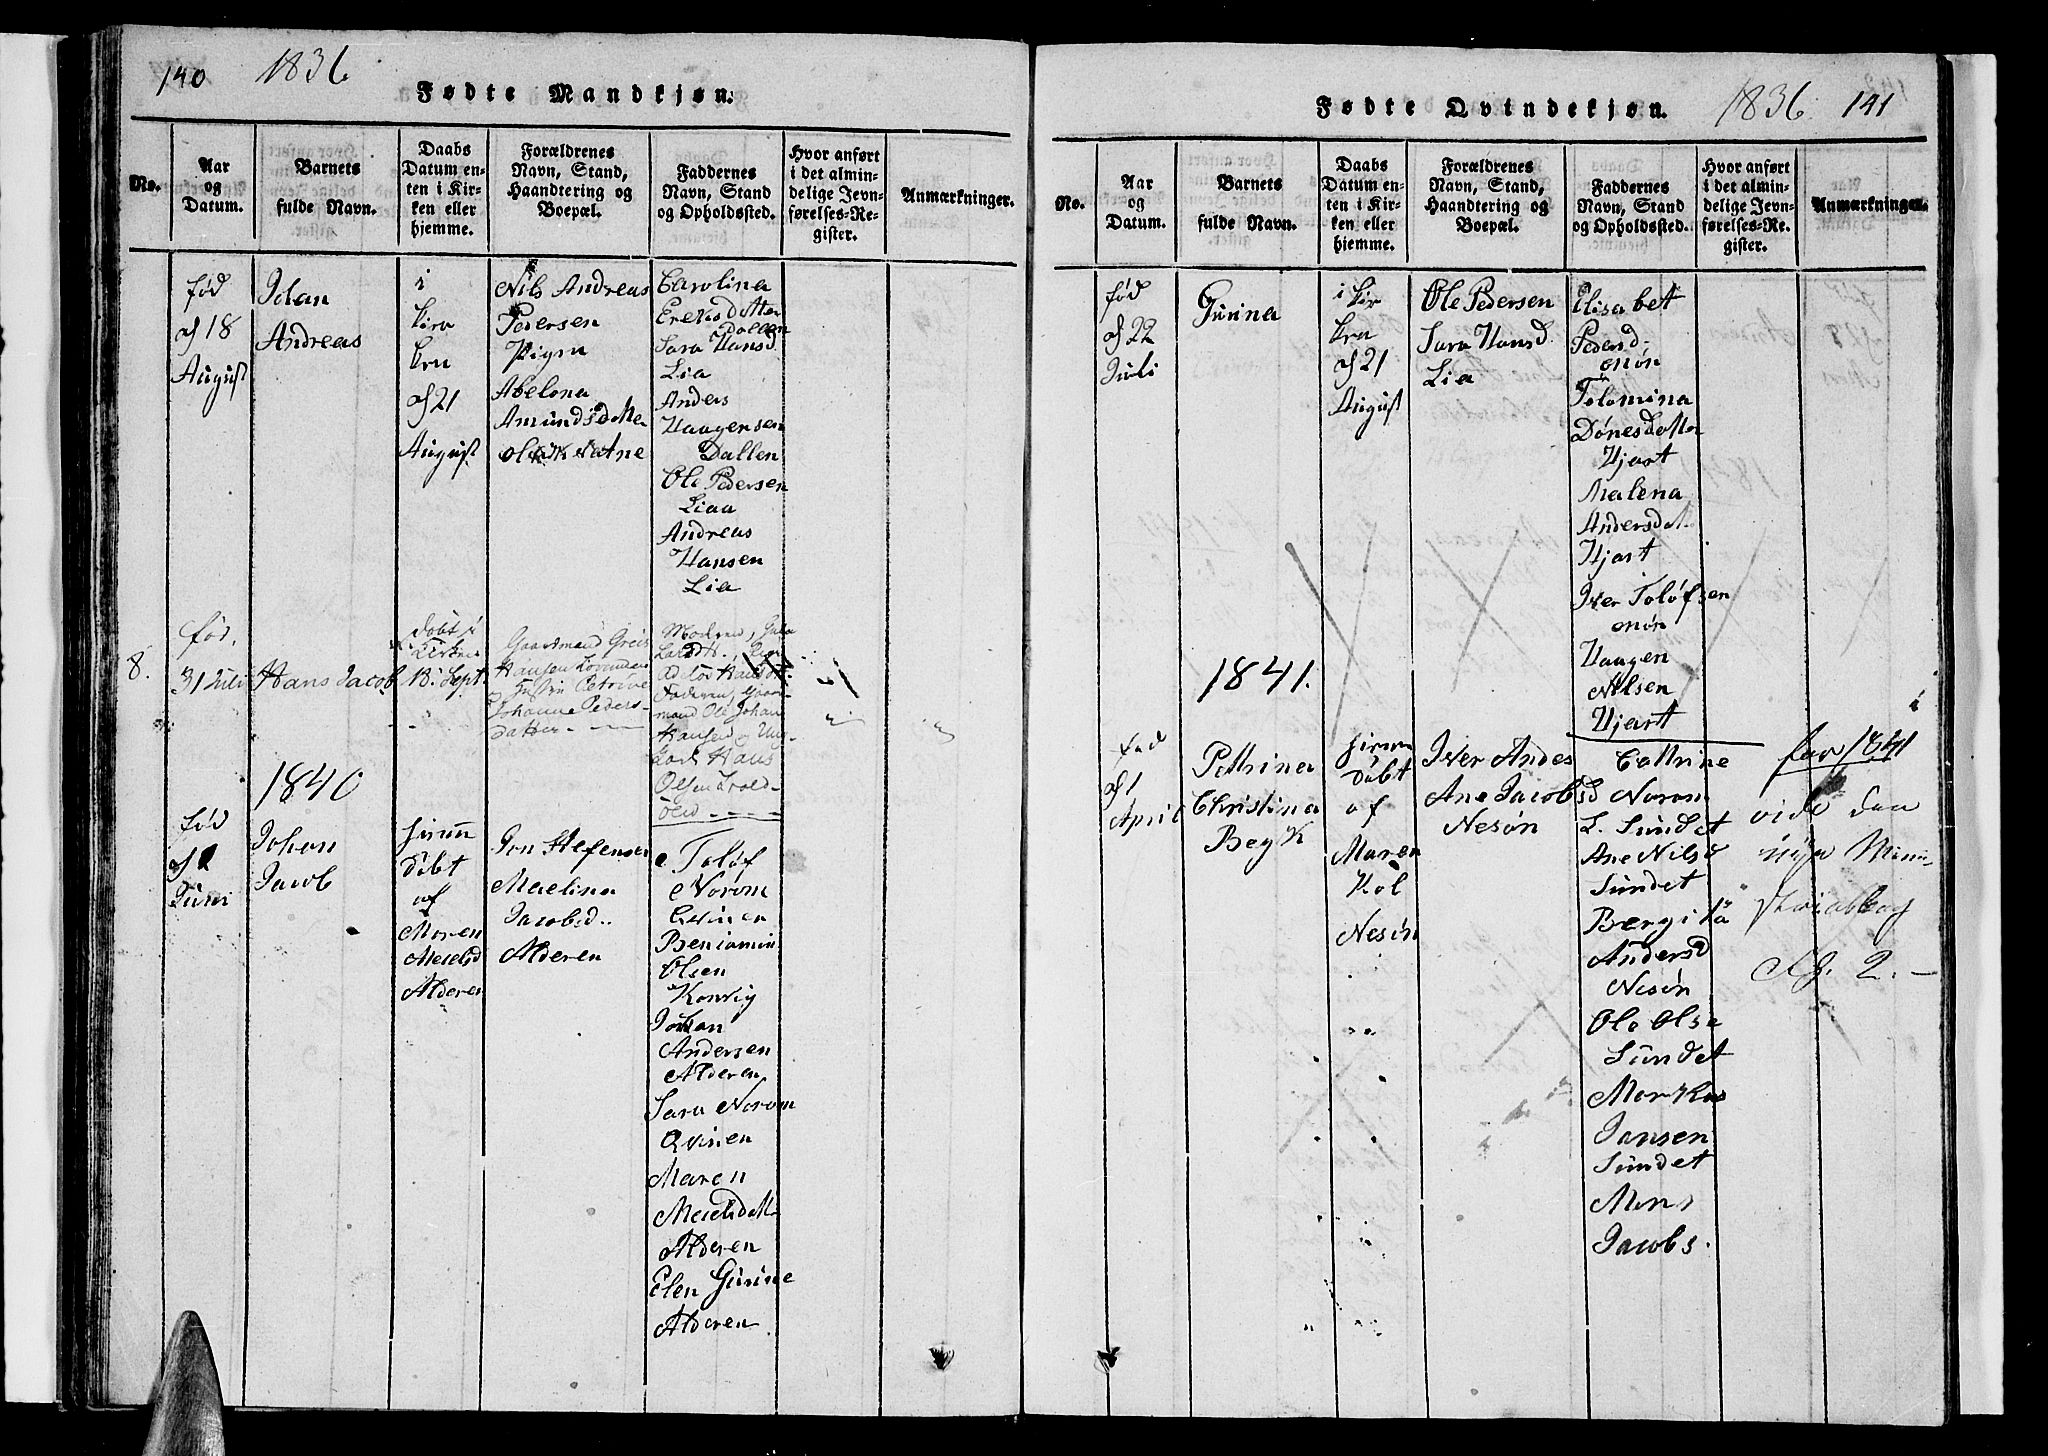 140 1836
Fødte Mandkjøn.
No.
Aar
og
Datum.
Barnets
fulde Navn.
Daabs
Datum en-
ten i Kir-
ken eller
hjemme.
Forældrenes
Navn, Stand,
Haandtering og
Boepæl.
Faddernes
Navn, Stand
og Opholdssted.
Hvor anført
i det almin-
delige Jevn-
førelses-Re-
gister.
Anmærkninger.
fød
18
August
Johan
Andreas
i
21
August
Nils Andreas
Pedersen
Abelona
Amundsdatter
Carolina
Dallen
Sara Hansd
Lia
Anders
Haagensen
Dallen
Ole Pedersen
Liaa
Andreas
Hansen
Lia
8.
fød.
31 Juli
Hans Jacob
Døbt i
18. Sept.
Gaardmand
Hansen
Petrine
Johanne Peders-
datter
Moderen,
Faderen, Gaard-
mand Ole Johan
Hansen
Hans
Olsen
1840
fød
Juni
Johan
Jacob
døbt
af
Maren
Alderen
Jon Stefensen
Maelina
Jacobsd.
Alderen
Toløf
Norøm
Benjamin
Olsen
Konvig
Johan
Andersen
Alderen
Sara Norøm
Qvinen
Maren
Alderen
Elen Gurine
Alderen
Fødte Qvindekjøn. 1836. 141
No.
Aar
og
Datum.
Barnets
fulde Navn.
Daabs
Datum en-
ten i Kir-
ken eller
hjemme.
Forældrenes
Navn, Stand,
Haandtering og
Boepæl.
Faddernes
Navn, Stand
og Opholdssted.
Hvor anført
i det almin-
delige Jevn-
førelses-Re-
gister.
Anmærkninger.
fød
22
Juli
Gurina
i kir
21
August
Ole Pedersen
Sara Hansd
Lia
Elisabet
Pedersd
Tolomina
Dønesdatter
Hjart
Malena
Andersdat
Hjart
Iver Toløfsen
Haagen
Nilsen
Hjart
1841.
fød
1
April
Pettrina
Christina
Begk
døbt
af
Maren
Kol
Nesøn
Iver Andes
Ane Jacobsd
Nesøn
Cattrine
Norøm
L. Sundet
Ane Nilsd
Sundet
Bergita
Andersd
Nesøn
Ole Olse
Sundet
Markus
Jansen
Sundet
Mons
Jacobs.
for 1841
vide den
nye Mini-
sterialbog
2.